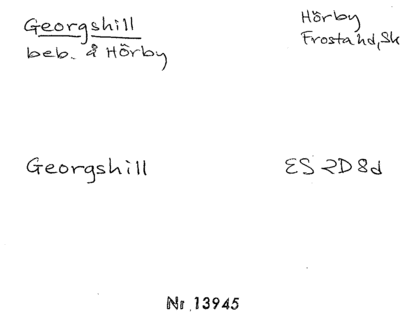 Georgshill
beb. å Hörby
Hörby
Frosta hd, Sk
Georgshill
ES 2D8d
Nr 13945